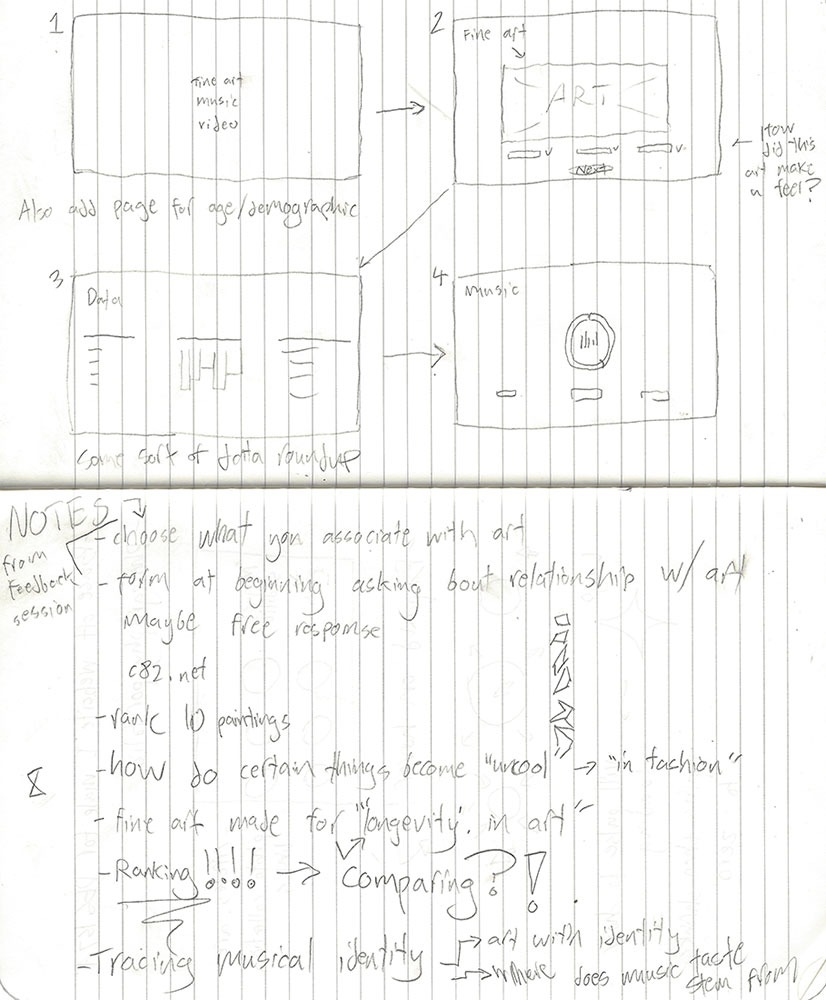 1
Fine art
music
video
Also add page for age/demographic
2
Fine art
ART
Next
How
did this
art make
u feel?
3
Data
some sort of data roundup
4
Music
NOTES
from
Feedback
session
- choose what you associate with art
- form at beginning asking bout relationship w/ art
maybe free response
c82.net
- rank 10 paintings
- how do certain things become "uncool" → "in fashion"
- fine art made for "longevity. in art"
- Ranking !!!! → Comparing?!
- Tracing musical identity
→ art with identity
→ where does music taste
stem from